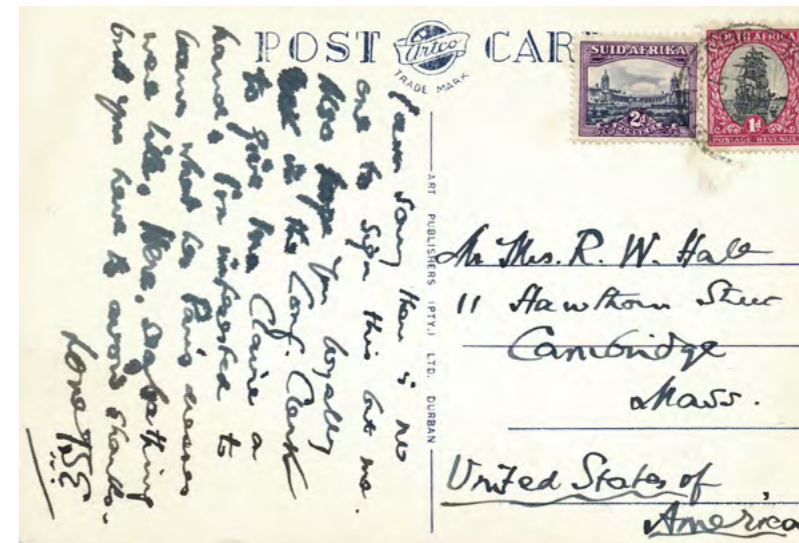 POST CAR
Artco
TRADE MARK
SUID AFRIKA
2d
POSTAGE
SOUTH AFRICA
1d
POSTAGE REVENUE
ART PUBLISHERS (PTY.) LTD. DURBAN
am sorry there is no
one to sign this but me.
hope you loyally
the Conf. Clerk
to give Claire a
hand & I'm interested to
know what her Paris dresses
were like. Here, seabathing
but you have to avoid sharks.
Love TSE
Mr Mrs. R. W. Hale
11 Hawthorn Street
Cambridge
Mass.
United States of
America